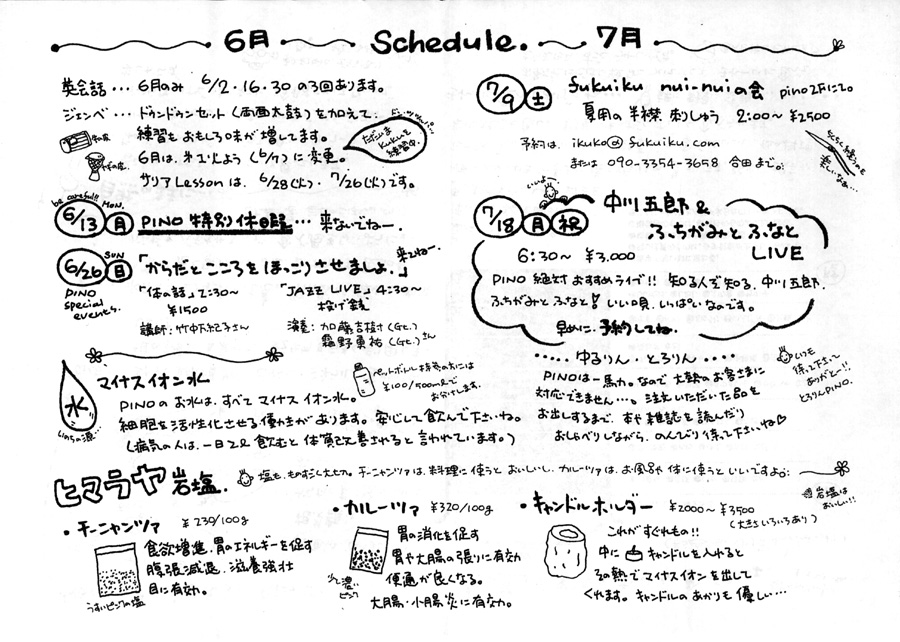 6月 Schedule. 7月
英会話… 6月のみ 6/2・16・30 の3回あります。
ジェンベ… ドゥンドゥンセット(西西太鼓)を加えて、
練習もおもしろ味が増してます。
6月は、オフにちよう(6/7)に変更。
サリアLessonは、6/28(火)・7/26(火)です。
ただいま
kukuを
練習中。
be careful!! MON.
6/13 月 PINO 特別休日… 来ないでねー.
SUN
6/26 日 「からだとこころをほっこりさせましょ。」 来てねー.
PINO
special
events.
「体の話」2:30〜
¥1500
講師:竹中
「JAZZ LIVE」4:30〜
投げ銭
演奏:加藤吉樹(Gt.)
霜野 (Gt.)さん
水
いのちの源…
マイナスイオン水
PINOのお水は、すべてマイナスイオン水。
細胞を活性化させる働きがあります。安心して飲んで下さいね。
(病気の人は、一日2ℓ飲むと体質改善されると言われています。)
ペットボトル持参の方には
¥100/500mlで
お分けします。
7/9 土 fukuiku nui-nuiの会 pino2Fにて。
夏用の半襟刺しゅう 2:00〜 ¥2500
予約は、ikuko@fukuiku.com
または 090-3354-3658 合田まで。
ちくちく
楽しいなあ…
いいよ〜
7/18 月 祝 中川五郎 &
ふちがみとふなと
LIVE
6:30〜 ¥3,000
PINO 絶対おすすめライブ!! 知る人ぞ知る、中川五郎.
ふちがみとふなと! いい唄、いっぱいなのです。
早めに、予約してね.
…‥ゆるりん・とろりん‥…
PINOは一馬力。なので 大勢のお客さまに
対応できません…。注文いただいた品を
お出しするまで、本や雑誌を読んだり
おしゃべりしながら、のんびり待って下さいね♡
いつも
待って下さって
ありがとー!!
とろりんPINO.
ヒマラヤ岩塩.
塩も、ものすごく大せつ。チーニャンツァは、料理に使うとおいしいし、カルーツァは、お風呂や体に使うといいですよ。
岩塩は
おいしい!!
・チーニャンツァ ¥230/100g
食欲増進、胃のエネルギーを促す
膨張減退、滋養強壮
目に有効。
うすいピンクの塩
・カルーツァ ¥320/100g
胃の消化を促す
胃や大腸の張りに有効
便通が良くなる。
大腸・小腸炎に有効。
濃い
ピンク
・キャンドルホルダー ¥2000〜¥3500
(大きさいろいろあり)
これがすぐれもの!!
中に キャンドルを入れると
その熱でマイナスイオンを出して
くれます。キャンドルのあかりも優しい…